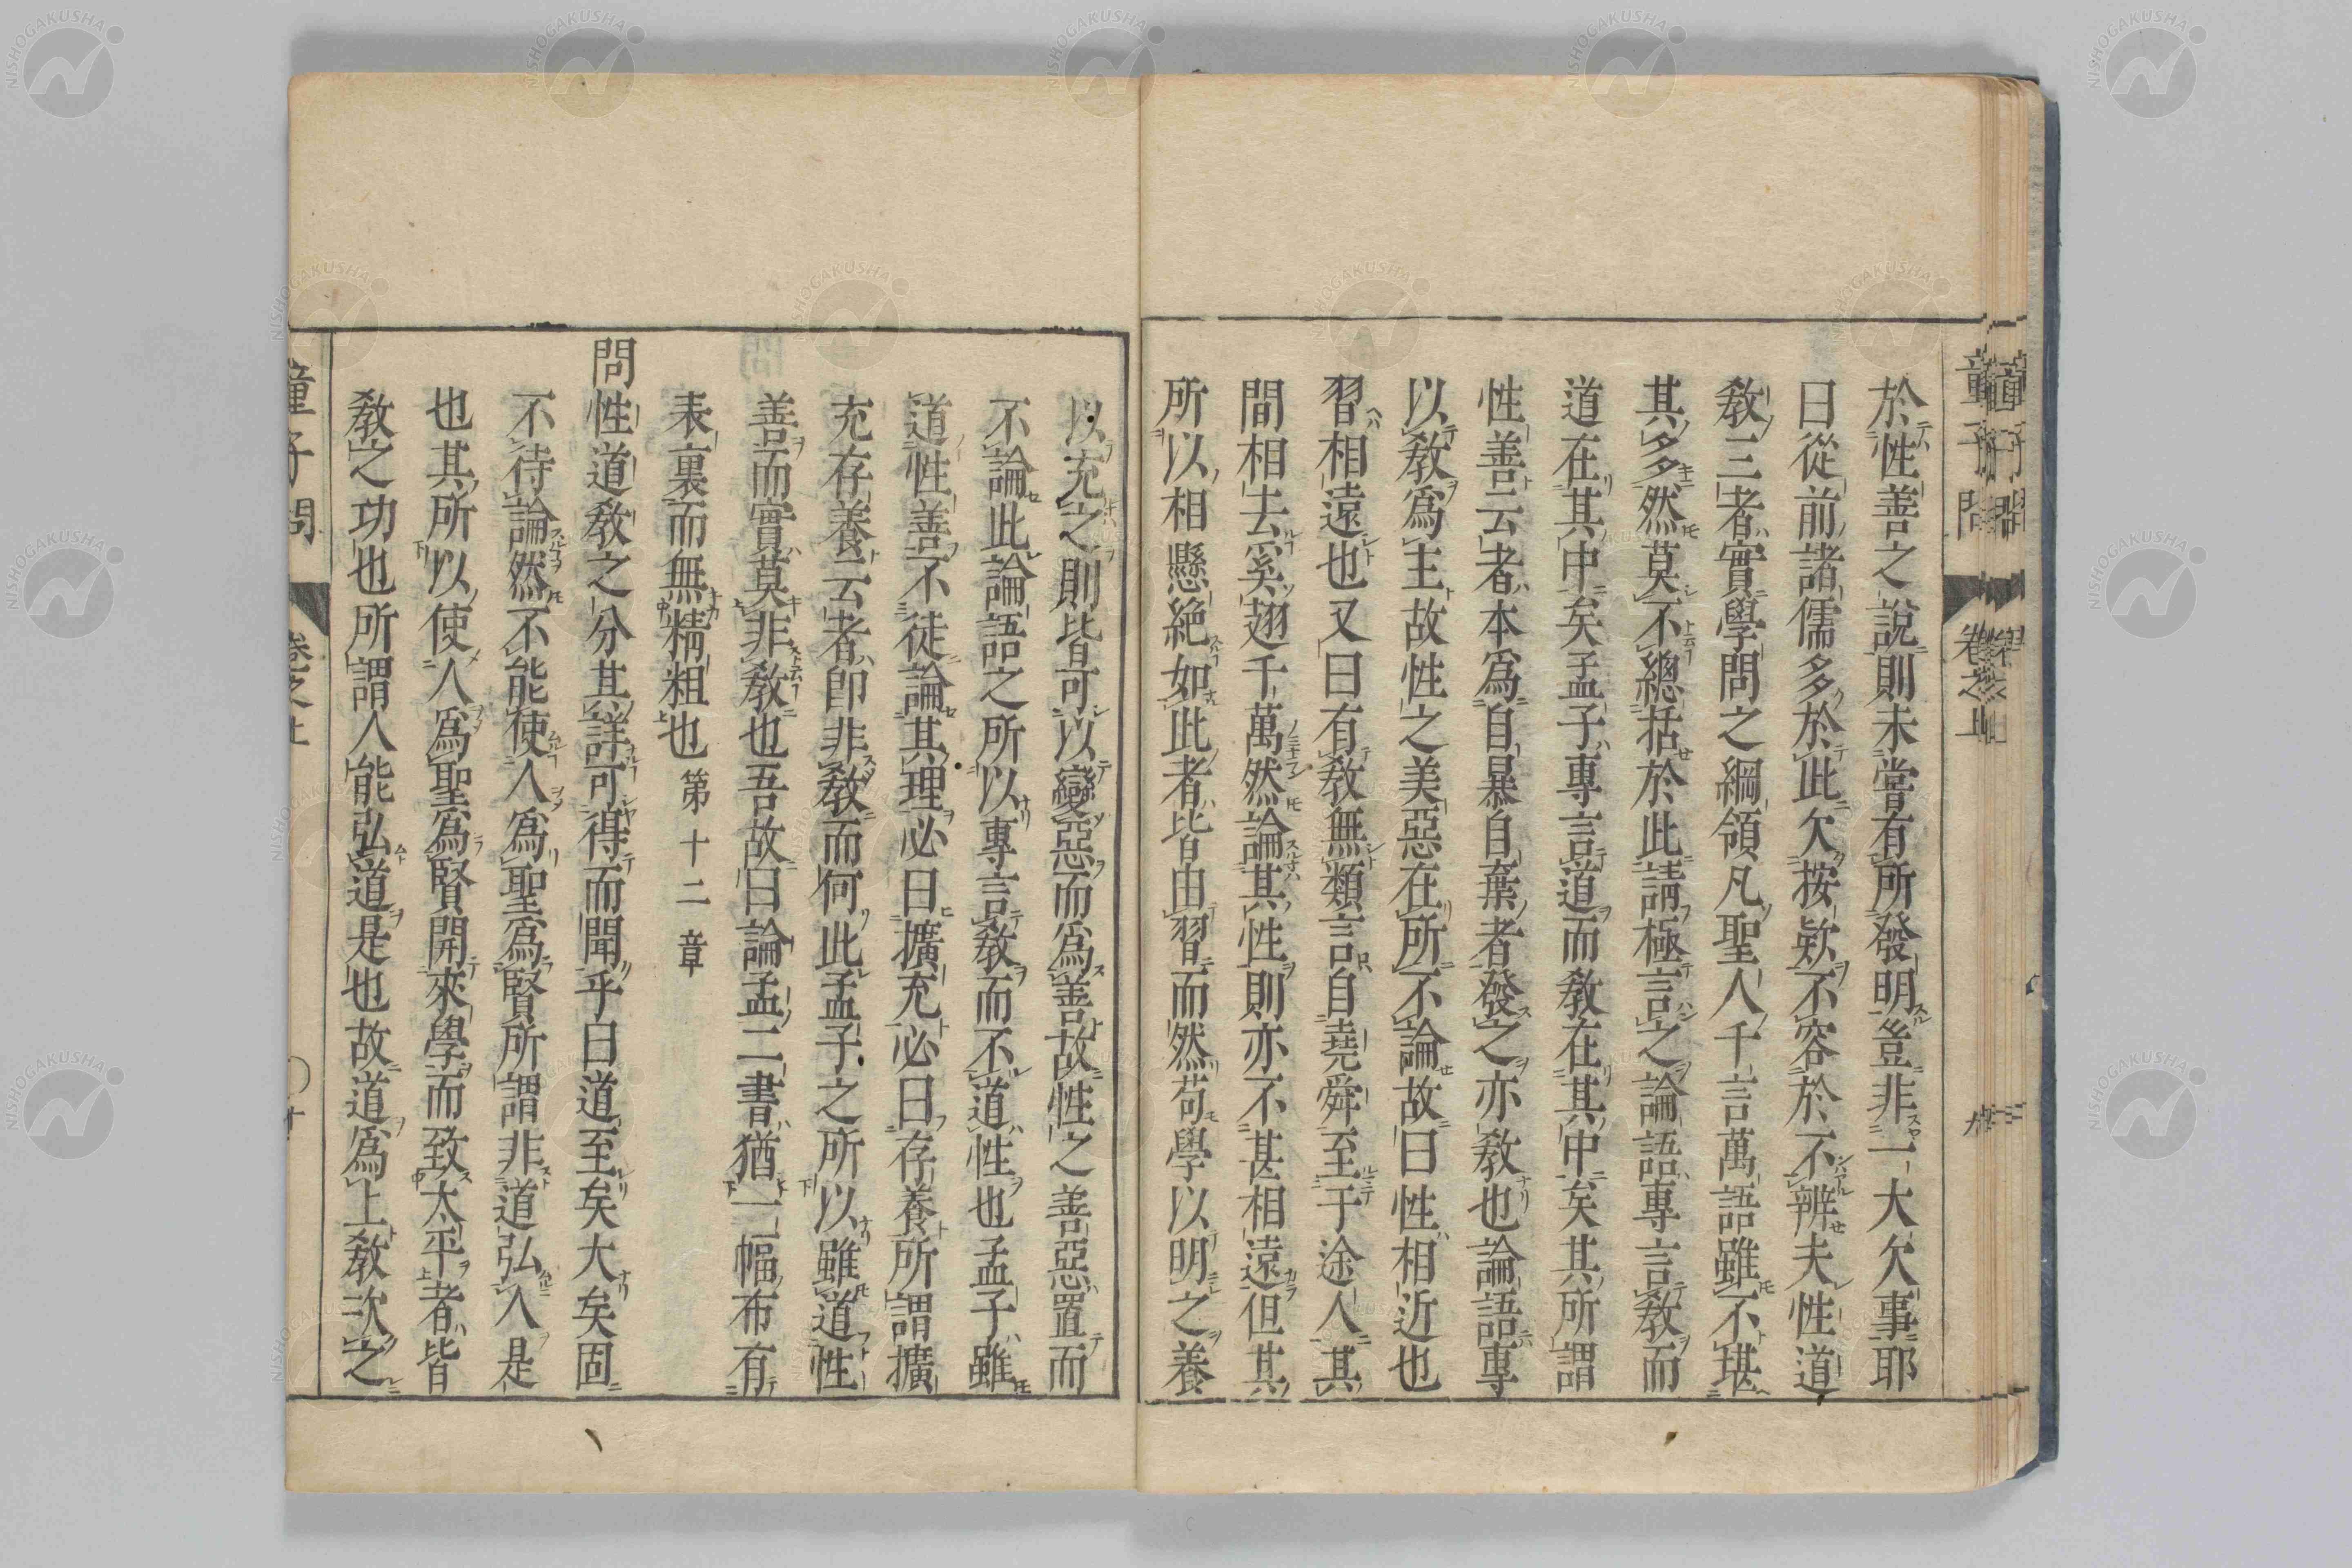 於性善之說則未嘗有所發明豈非一大欠事耶
曰從前諸儒多於此欠按欵不容於不辨夫性道
教三者實學問之綱領凡聖人千言萬語雖不堪
其多然莫不總括於此請極言之論語專言教而
道在其中矣孟子專言道而教在其中矣其所謂
性善云者本為自暴自棄者發之亦教也論語專
以教爲主故性之美惡在所不論故曰性相近也
習相遠也又曰有教無類言自堯舜至于途人其
間相去奚翅千萬然論其性則亦不甚相遠但其
所以相懸絶如此者皆由習而然苟學以明之養
以充之則皆可以變惡而爲善故性之善惡置而
不論此論語之所以專言教而不道性也孟子雖
道性善不徒論其理必曰擴充必曰存養所謂擴
充存養云者即非教而何此孟子之所以雖道性
善而實莫非教也吾故曰論孟二書猶一幅布有
表裏而無精粗也 第十二章
問性道教之分其詳可得而聞乎曰道至矣大矣固
不待論然不能使人爲聖爲賢所謂非道弘人是
也其所以使人爲聖爲賢開來學而致太平者皆
教之功也所謂人能弘道是也故道爲上教次之
童子問 卷之上 九
童子問 卷之上 十
NISHOGAKUSHA